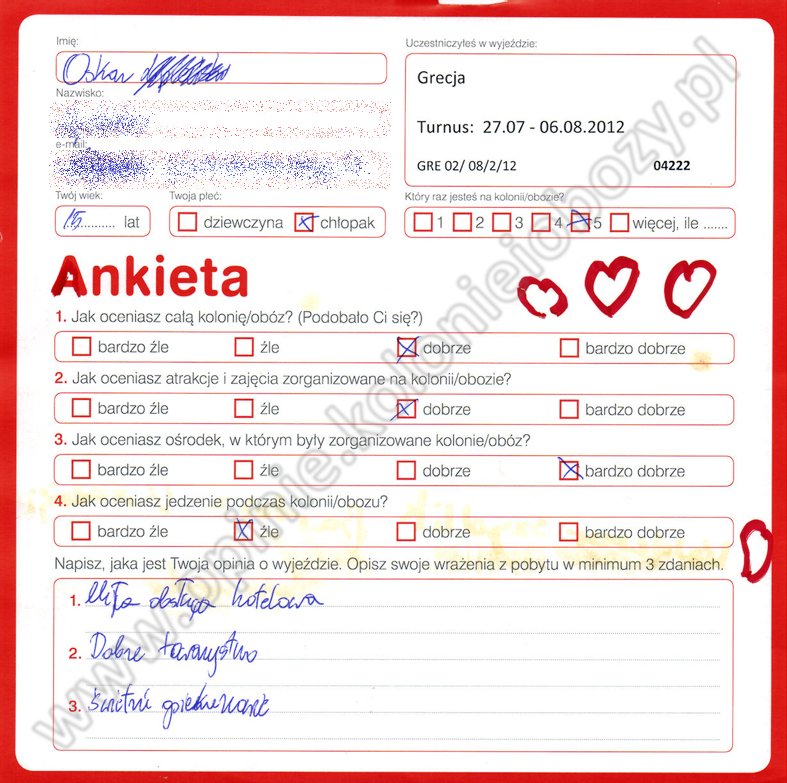 Imię:
Uczestniczyłeś w wyjeździe:
Oskar
Grecja
Nazwisko:
Turnus: 27.07 - 06.08.2012
e-mail:
GRE 02/ 08/2/12 04222
Twój wiek: Twoja płeć: Który raz jesteś na kolonii/obozie?
15 .......... lat dziewczyna chłopak 1 2 3 4 5 więcej, ile .......
Ankieta
1. Jak oceniasz całą kolonię/obóz? (Podobało Ci się?)
bardzo źle źle dobrze bardzo dobrze
2. Jak oceniasz atrakcje i zajęcia zorganizowane na kolonii/obozie?
bardzo źle źle dobrze bardzo dobrze
3. Jak oceniasz ośrodek, w którym były zorganizowane kolonie/obóz?
bardzo źle źle dobrze bardzo dobrze
4. Jak oceniasz jedzenie podczas kolonii/obozu?
bardzo źle źle dobrze bardzo dobrze
Napisz, jaka jest Twoja opinia o wyjeździe. Opisz swoje wrażenia z pobytu w minimum 3 zdaniach.
1. Miła obsługa hotelowa
2. Dobre towarzystwo
3. Świetni opiekunowie
www.opinie.kolonieiobozy.pl